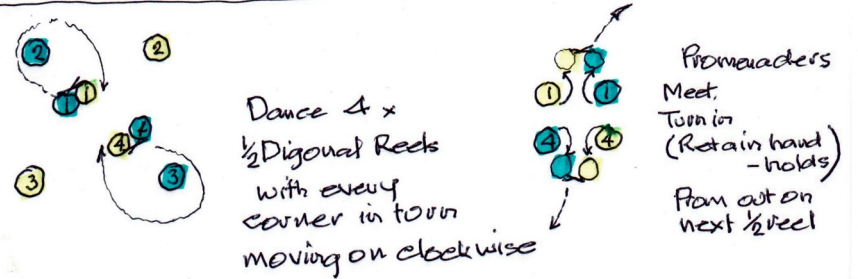 2
2
1
1
4
4
3
3
Dance 4 x
½ Digonal Reels
with every
corner in turn
moving on clockwise
1
1
4
4
Promenaders
Meet,
Turn in
(Retain hand
-holds)
Prom out on
next ½ reel